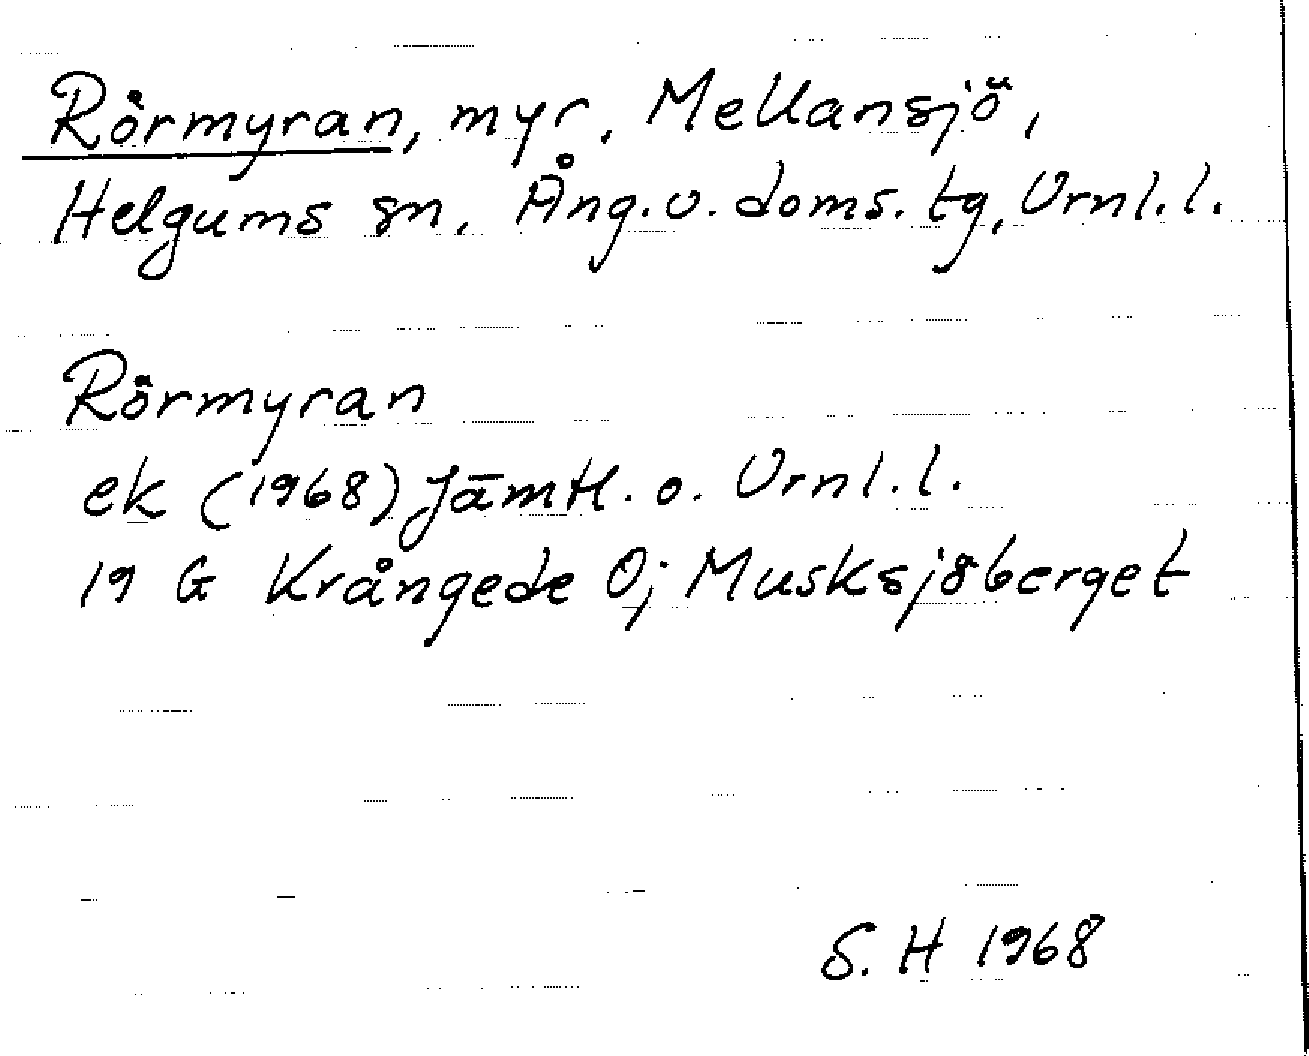 Rörmyran, myr, Mellansjö,
Helgums sn, Ång. v. doms. tg, Vrnl. l.
Rörmyran
ek (1968) Jämtl. o. Vrnl. l.
19 G Krångede 0j Musksjöberget
S. H 1968